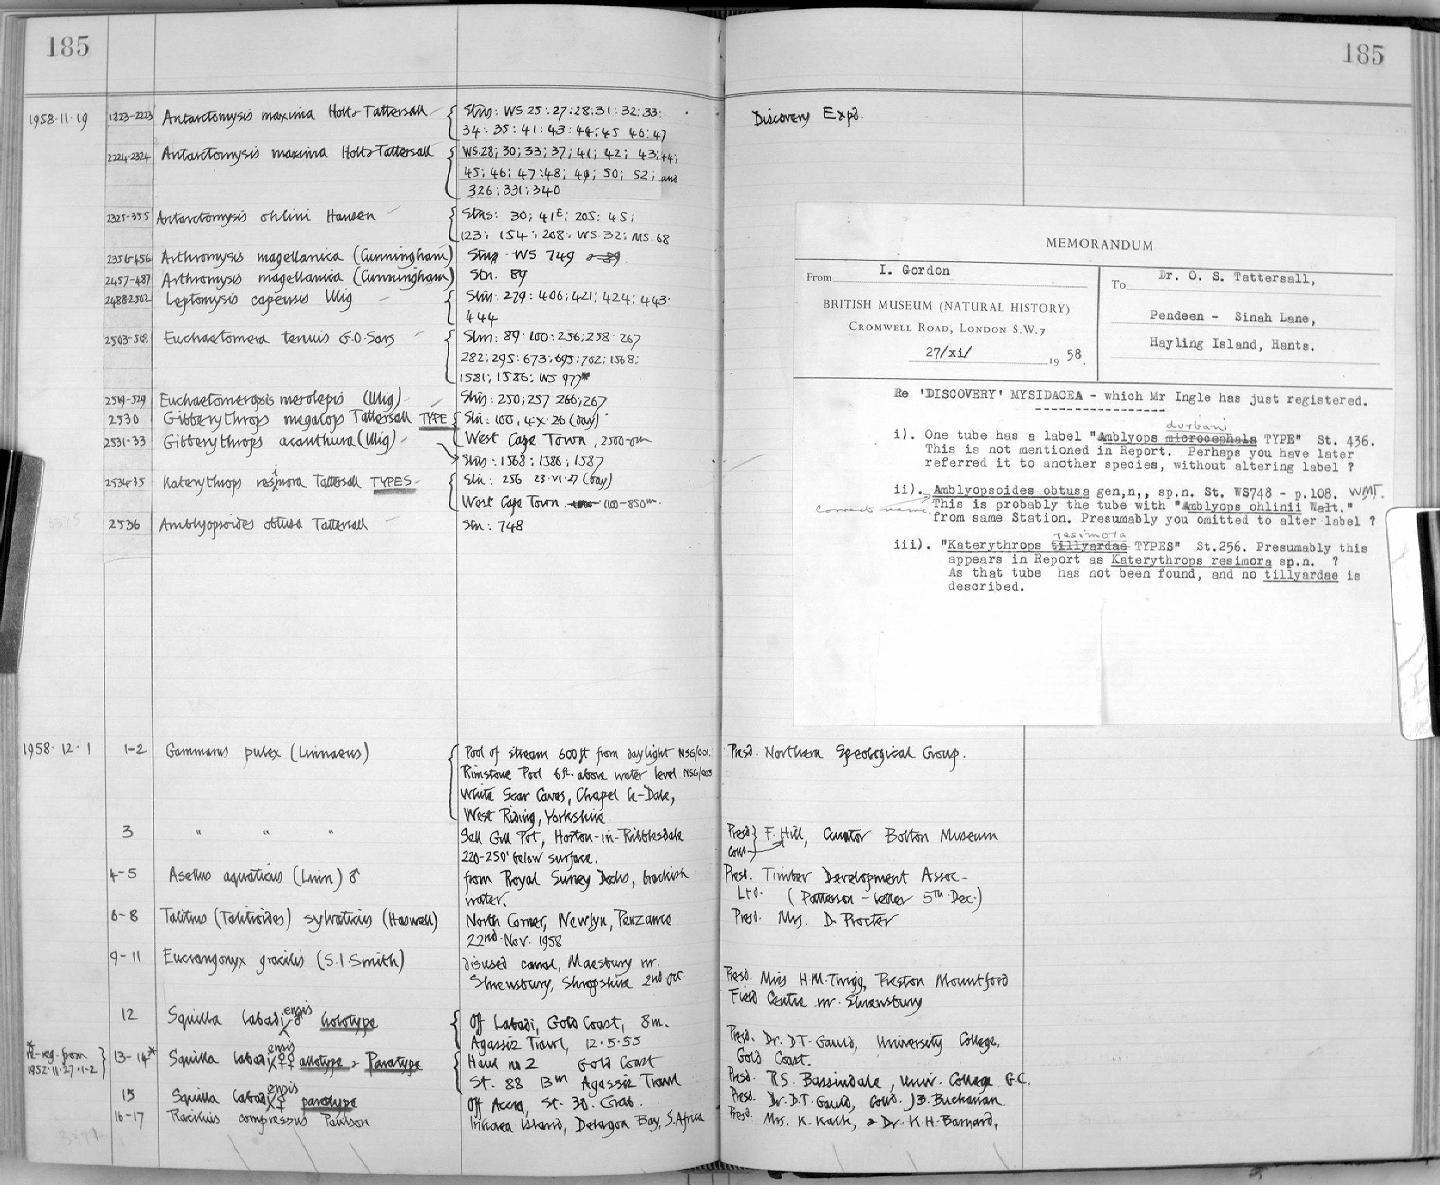 185
185
1958.11.19
1223-2223 Antarctomysis maxima Holt & Tattersall
Stns: WS 25: 27: 28: 31: 32: 33:
34: 35: 41: 43: 44: 45 46: 47
Discovery Expd.
2224-2324 Antarctomysis maxima Holt & Tattersall
WS.28; 30; 33; 37; 41; 42; 43; 44;
45; 46; 47: 48; 49; 50; 52; and
326; 331; 340
2325-355 Antarctomysis ohlini Hansen
Stns: 30; 41E; 205: 45;
123; 154; 208. WS 32; MS. 68
2356-456 Arthromysis magellanica (Cunningham) Stn WS 749
2457-487 Arthromysis magellanica (Cunningham) Stn. 89
2488-2502 Leptomysis capensis Illig
Stns: 279: 406; 421; 424; 443.
444
2503-518 Euchaetomera tenuis G.O. Sars
Stns: 89. 100: 256; 258. 267
282; 295: 673; 695; 702; 1568;
1581; 1586; WS 977*
2519-529 Euchaetomeropsis merolepis (Illig) Stns: 250; 257 266; 267
2530 Gibberythrops megalops Tattersall TYPE Stn: 100, 4.x.26 (Day)
2531-33 Gibberythrops acanthura (Illig)
West Cape Town, 2500-0m
Stns: 1568; 1586; 1587
2534-35 Katerythrops resimora Tattersall TYPES
Stn: 256 23.VI.27 (Day)
West Cape Town 1100-850m.
2536 Amblyopsoides obtusa Tattersall Stn: 748
MEMORANDUM
From I. Gordon
BRITISH MUSEUM (NATURAL HISTORY)
CROMWELL ROAD, LONDON S.W.7
27/xi/ 19 58.
To Dr. O. S. Tattersall,
Pendeen - Sinah Lane,
Hayling Island, Hants.
Re 'DISCOVERY' MYSIDACEA - which Mr Ingle has just registered.
durbani
i). One tube has a label "Amblyops microcephala TYPE" St. 436.
This is not mentioned in Report. Perhaps you have later
referred it to another species, without altering label ?
ii). Amblyopsoides obtusa gen,n,, sp.n. St. WS748 - p.108. WMT.
correct name. This is probably the tube with "Amblyops ohlinii Walt."
from same Station. Presumably you omitted to alter label ?
resimora
iii). "Katerythrops tillyardae TYPES" St.256. Presumably this
appears in Report as Katerythrops resimora sp.n. ?
As that tube has not been found, and no tillyardae is
described.
1958.12.1
1-2 Gammarus pulex (Linnaeus)
Pool of stream 600ft from daylight NSG/001.
Rimstone Pool 6ft. above water level NSG/003
White Scar Caves, Chapel le-Dale,
West Riding, Yorkshire
Presd. Northern Speological Group.
3 " " "
Sell Gill Pot, Horton-in-Ribblesdale
220-250' below surface.
Presd F. Hill, Curator Bolton Museum
Coll
4-5 Asellus aquaticus (Linn) ♂
from Royal Surrey Docks, brackish
water.
Presd. Timber Development Assoc-
Ltd. (Patterson - letter 5th Dec.)
6-8 Talitrus (Talitroides) sylvaticus (Haswell)
North Corner, Newlyn, Penzance
22nd. Nov. 1958
Presd. Mrs. D. Procter
9-11 Eucrangonyx gracilis (S.I. Smith)
disused canal, Maesbury nr.
Shrewsbury, Shropshire 2nd Oct
Presd. Miss H.M. Twigg, Preston Mountford
Field Centre nr. Shrewsbury
12 Squilla labadiensis ♂ holotype
Off Labadi, Gold Coast, 8m.
Agassiz Trawl, 12.5.55
Presd. Dr. D.T. Gauld, University College,
Gold Coast.
*
Re-reg. from
1952.11.27.1-2
13-14* Squilla labadiensis ♀♀ allotype & Paratype
Haul no 2 Gold Coast
St. 88 13m Agassiz Trawl
Presd. R.S. Bassindale, Univ. College G.C.
15 Squilla labadiensis ♀ paratype
Off Accra, St. 30. Grab.
Presd. Dr. D.T. Gauld, Coll. J.B. Buchanan
16-17 Racilius compressus Paulson
Inhaca Island, Delagoa Bay, S. Africa
Presd. Mrs. K. Kalk, & Dr. K.H. Barnard,